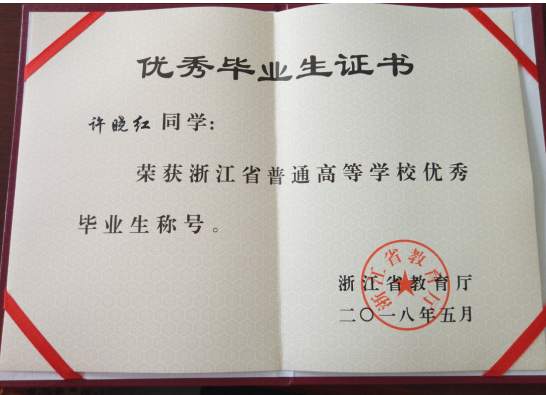 优秀毕业生证书
许晓红同学:
荣获浙江省普通高等学校优秀
毕业生称号。
浙江省教育厅
浙江省教育厅
二〇一八年五月